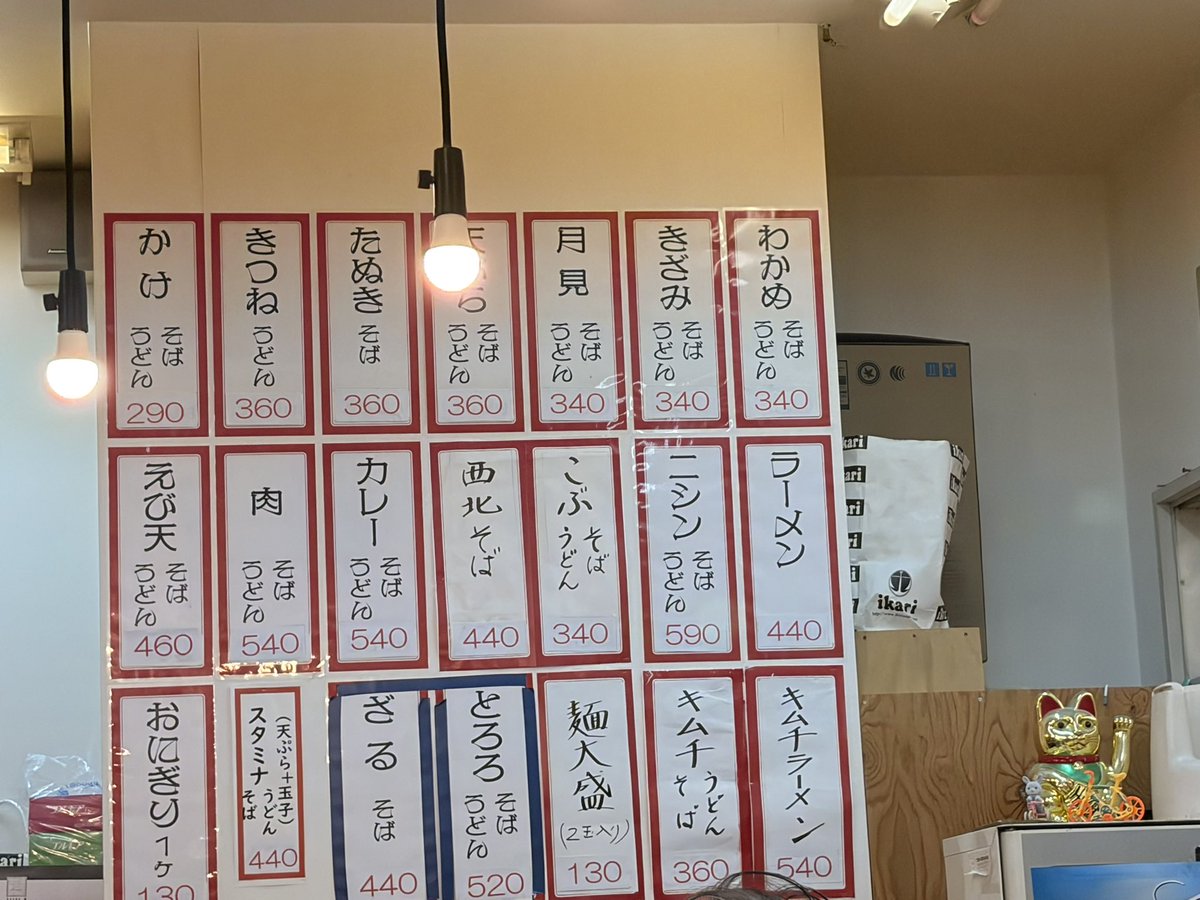 かけ
そば
うどん
290
きつね
うどん
360
たぬき
そば
360
そば
うどん
360
月見
そば
うどん
340
きざみ
そば
うどん
340
わかめ
そば
うどん
340
えび天
そば
うどん
460
肉
そば
うどん
540
カレー
そば
うどん
540
西北そば
440
こぶ
そば
うどん
340
ニシン
そば
うどん
590
ラーメン
440
おにぎり1ヶ
130
(天ぷら+玉子)
スタミナ
うどん
そば
440
ざる
そば
440
とろろ
そば
うどん
520
麺大盛
(2玉入り)
130
キムチ
うどん
そば
360
キムチラーメン
540
ikari